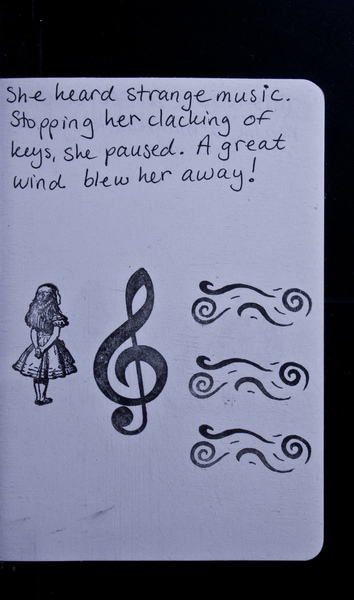 She heard strange music.
Stopping her clacking of
keys, she paused. A great
wind blew her away!